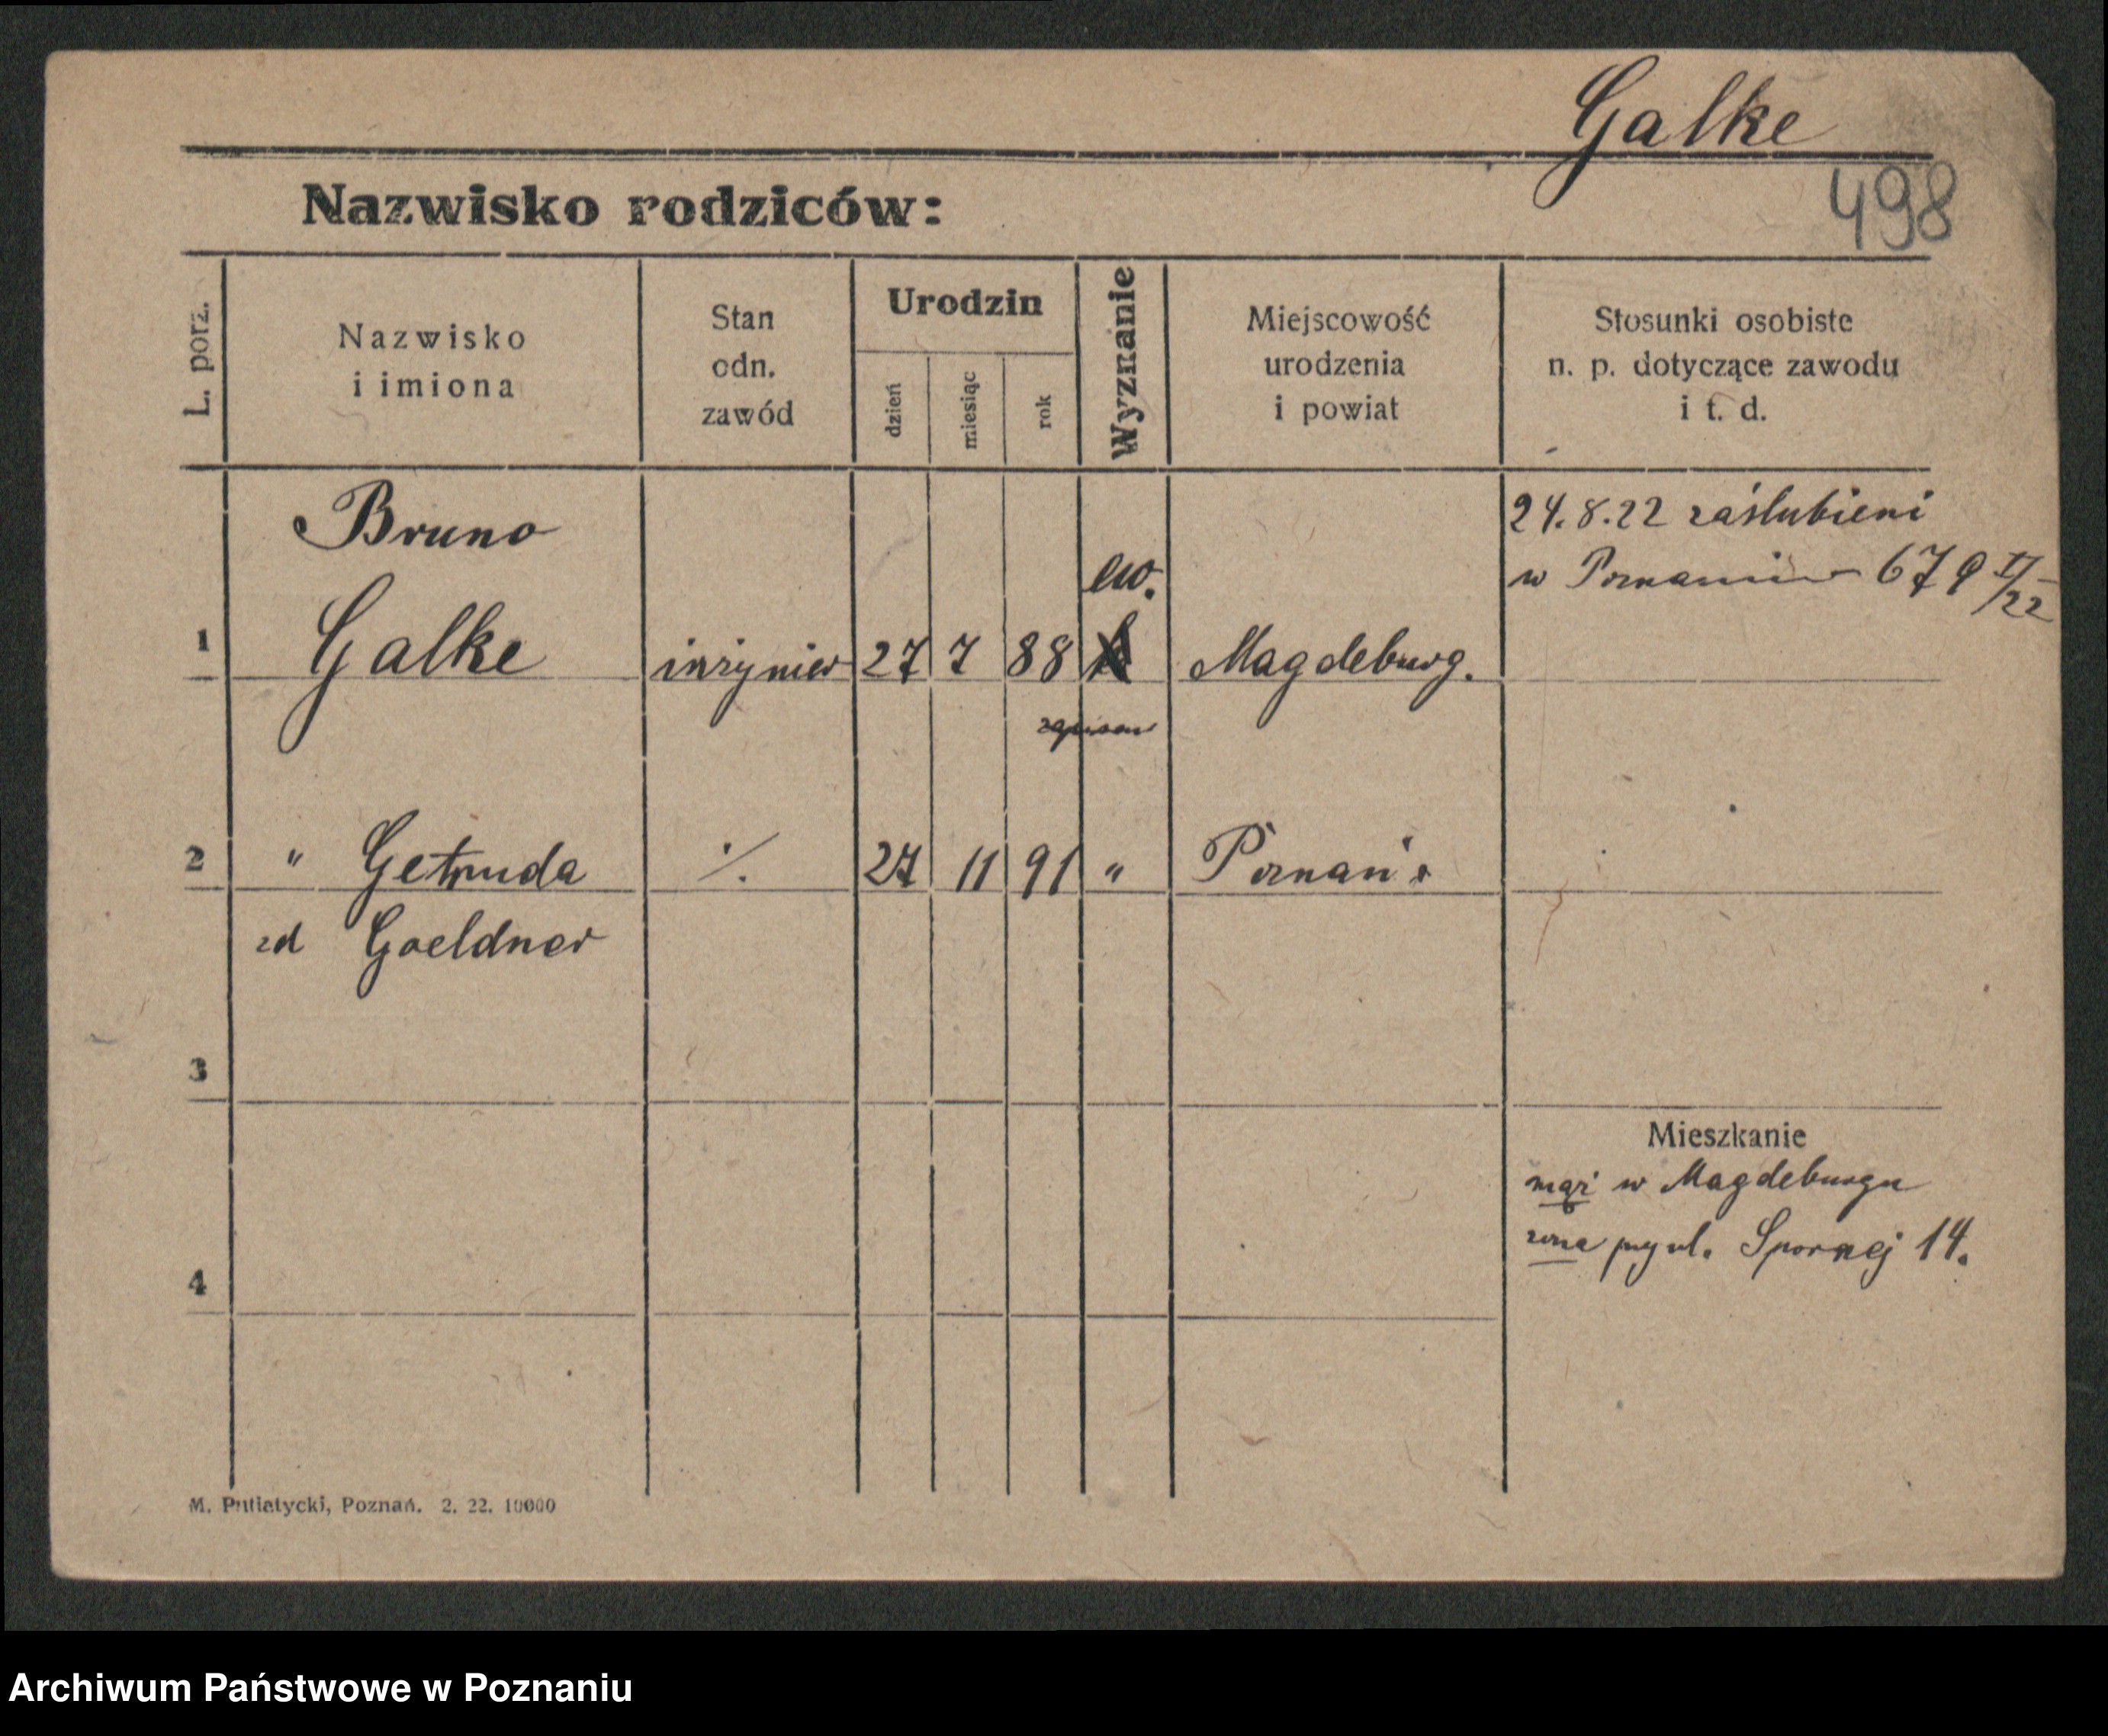 Galke
498
Nazwisko rodziców:
L. porz.
Nazwisko
i imiona
Stan
odn.
zawód
Urodzin
dzień
miesiąc
rok
Wyznanie
Miejscowość
urodzenia
i powiat
Stosunki osobiste
n. p. dotyczące zawodu
i t. d.
24.8.22 zaślubieni
w Poznaniu 679 II/22
Bruno
ew.
1 Galke inżynier 27 7 88 Magdeburg.
zapisan
2 " Getruda ./. 27 11 91 " Poznań
zd Goeldner
3
Mieszkanie
mąż w Magdeburgu
żona przy ul. Spornej 14.
4
M. Putiatycki, Poznań. 2. 22. 10000
Archiwum Państwowe w Poznaniu